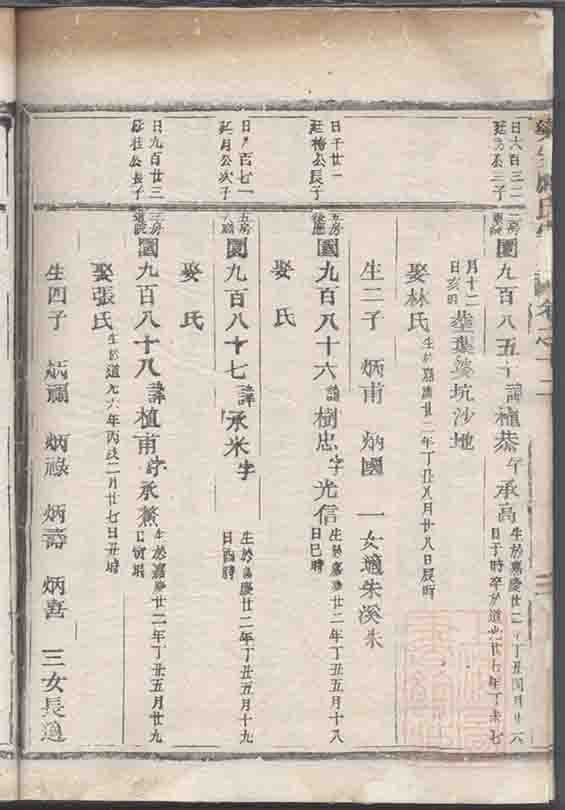 日六百三二
廷芳公三子
二房
東院
國九百八五十
諱植蒸
字承高
生於嘉慶廿二年丁丑閏月廿六
日子時卒於道光廿七年丁未七
月十二
日亥時
墓葉發坑沙地
娶林氏
生於嘉慶廿二年丁丑八月廿八日辰時
生二子 炳甫 炳國 一女適朱溪朱
日千廿一
廷梅公長子
五房
後應
國九百八十六
諱樹忠
字光信
生於嘉慶廿二年丁丑五月十八
日巳時
娶 氏
日九百七一
廷月公次子
五房
國九百八十七
諱承米
字
生於嘉慶廿二年丁丑五月十九
日酉時
娶 氏
日九百廿三
廷桂公長子
三房
道院
國九百八十八
諱植甫
字承薰
生於嘉慶廿二年丁丑五月廿九
日寅時
娶張氏
生於道光六年丙戌二月廿七日丑時
生四子 炳爾 炳祿 炳壽 炳喜 三女長適